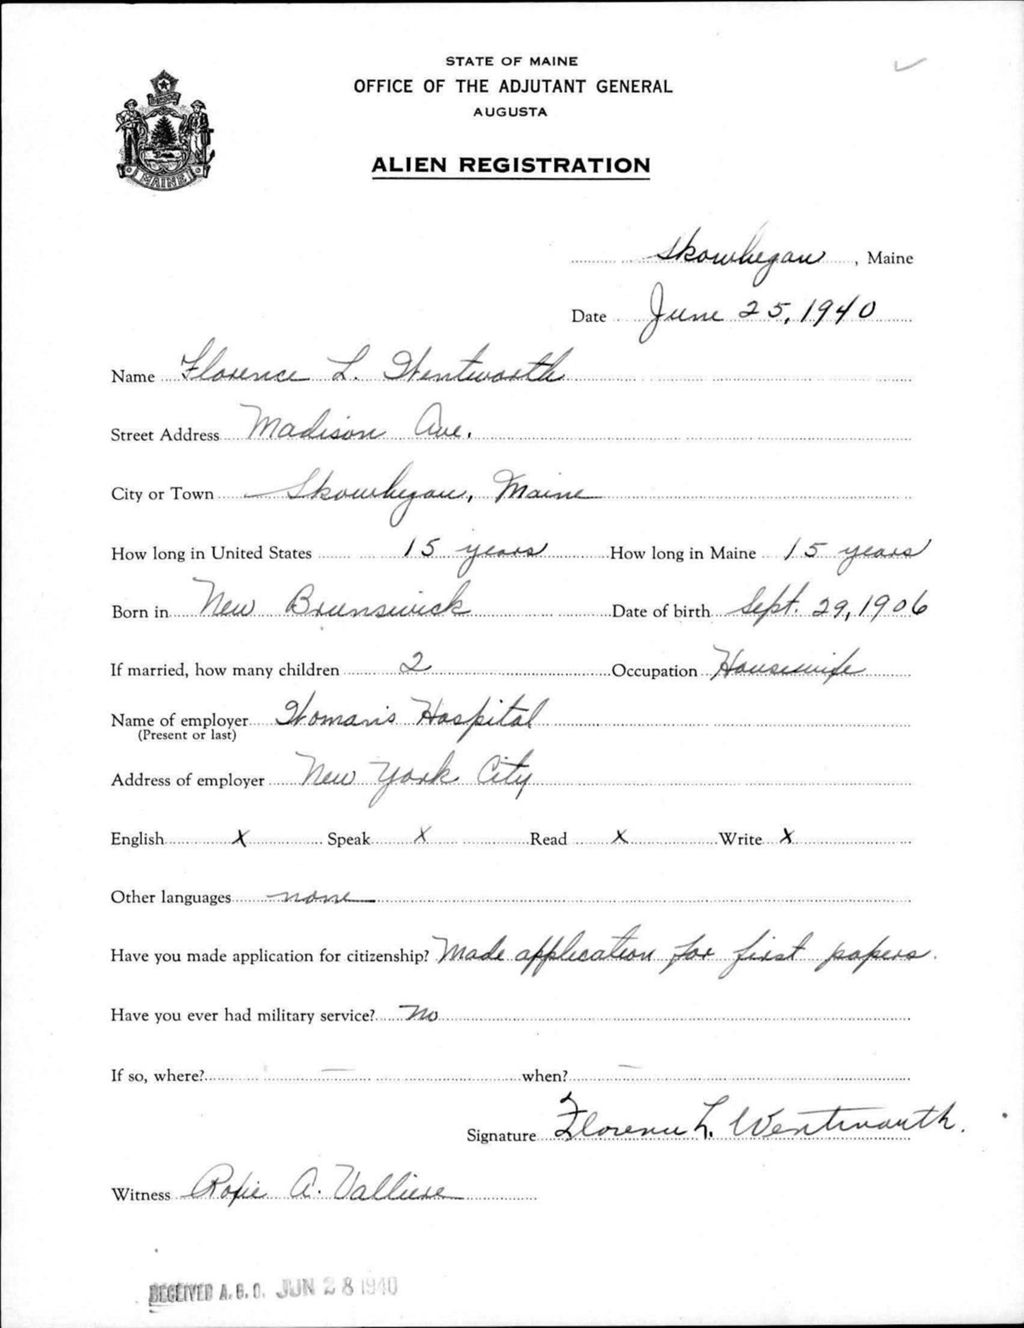 STATE OF MAINE
OFFICE OF THE ADJUTANT GENERAL
AUGUSTA
MAINE
ALIEN REGISTRATION
Skowhegan, Maine
Date June 25, 1940
Name Florence L. Wentworth
Street Address Madison Ave.
City or Town Skowhegan, Maine
How long in United States 15 years How long in Maine 15 years
Born in New Brunswick Date of birth Sept. 29, 1906
If married, how many children 2 Occupation Housewife
Name of employer Woman's Hospital
(Present or last)
Address of employer New York City
English X Speak X Read X Write X
Other languages none
Have you made application for citizenship? Made application for first papers.
Have you ever had military service? No
If so, where? — when? —
Signature Florence L. Wentworth.
Witness A. Valliere
RECEIVED A.G.O. JUN 28 1940